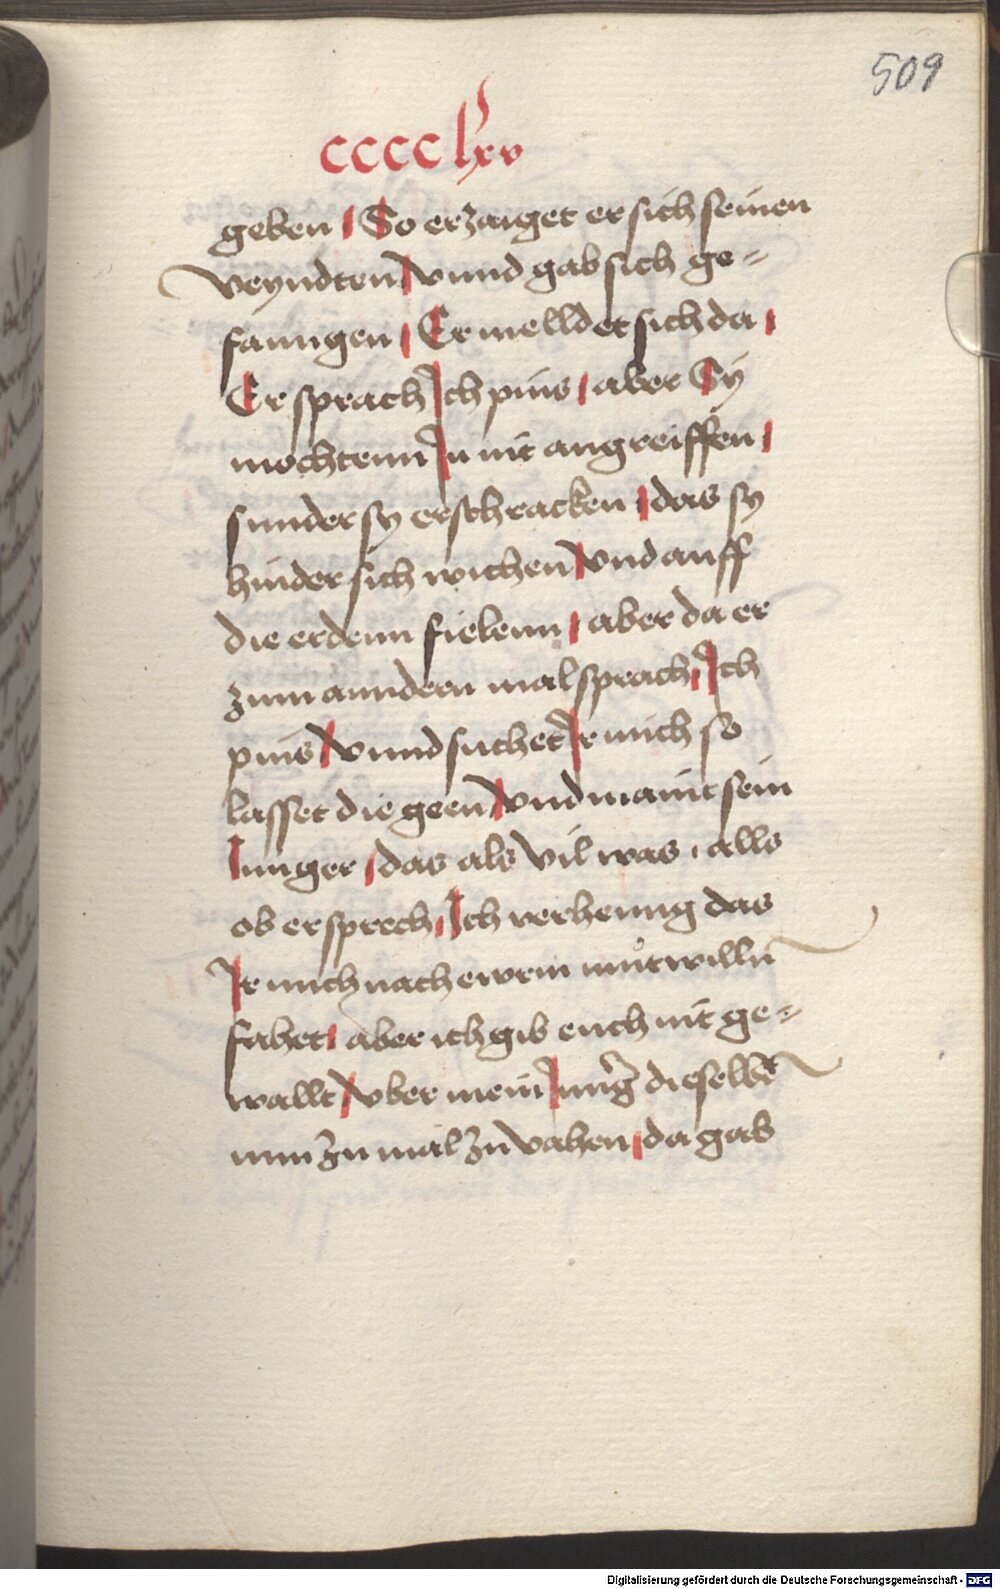 509
cccclxv
geben / So erzaiget er sich seinen
veyndten vnnd gab sich ge=
fanngen / Er melldet sich da /
Er sprach Ich pins / aber Sy
mochtenn In nit angreiffen /
sunder sy erschracken / das sy
hinder sich wichen vnd auff
die erdenn fielenn / aber da er
zum anndern mal sprach / Ich
pins vnnd suchet Ir mich so
lasset die geen vnd maint sein
Iunger / das als vil was / alls
ob er sprech / Ich verheng das
Ir mich nach ewrm můtwilln
fahet / aber ich gib euch nit ge=
wallt vber mein Iung̃ dieselbñ
nun zu mal zu vahen / da gab
Digitalisierung gefördert durch die Deutsche Forschungsgemeinschaft - DFG